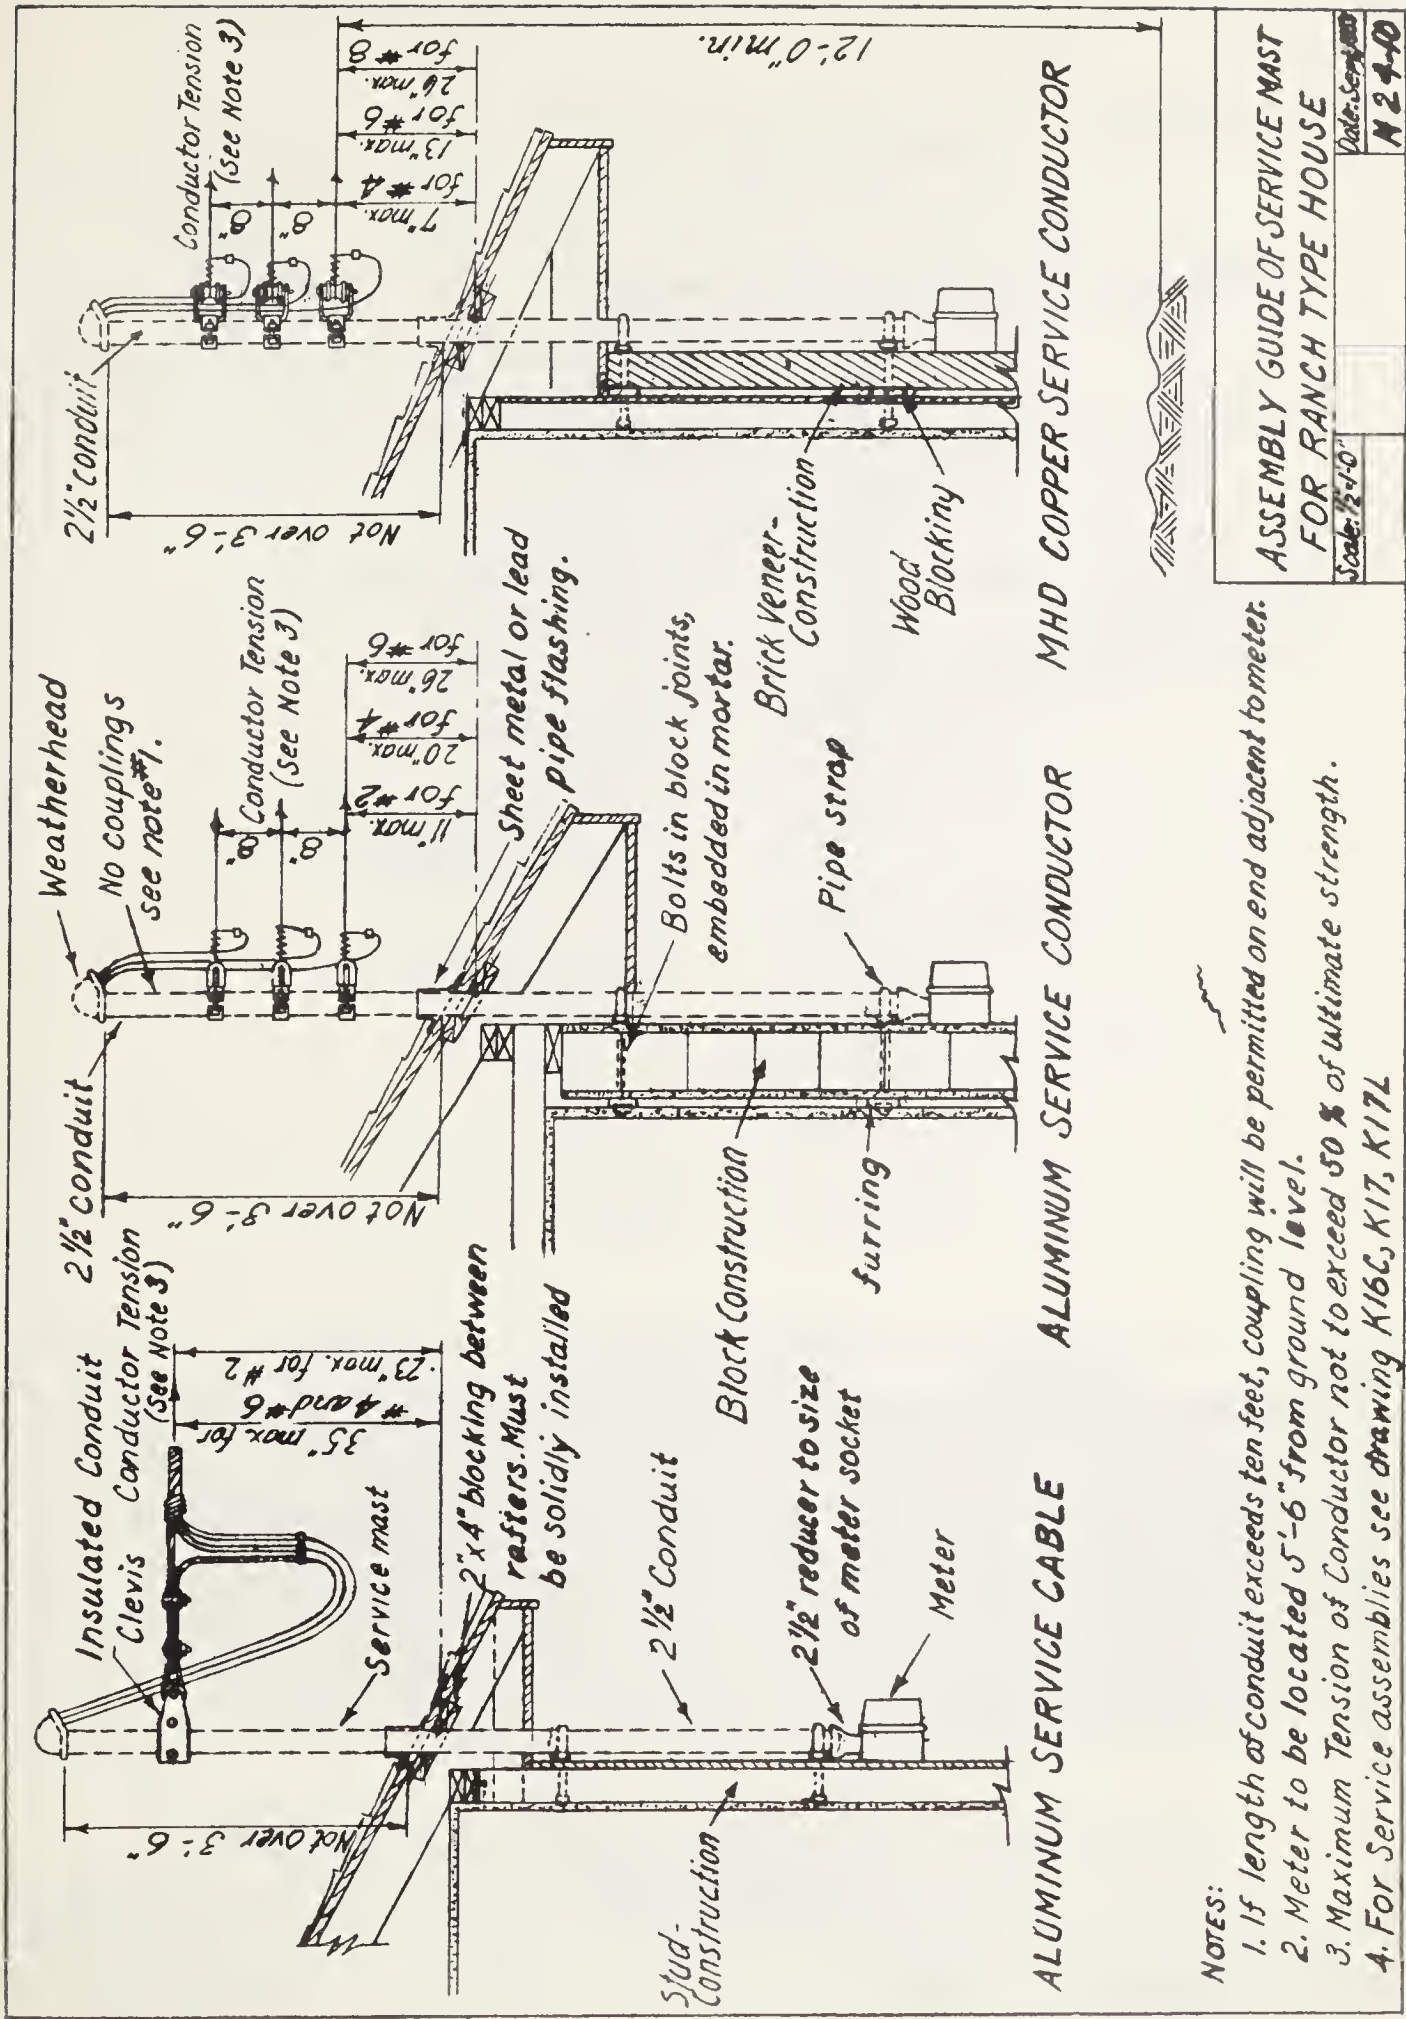 Insulated Conduit
Clevis
Conductor Tension
(See Note 3)
35" max for
#4 and #6
23" max. for #2
Not over 3'-6"
Service mast
2"x4" blocking between
rafters. Must
be solidly installed
2½" Conduit
2½" reducer to size
of meter socket
Meter
Stud-
Construction
ALUMINUM SERVICE CABLE
Weatherhead
2½" conduit
No couplings
see note #1.
8"
8"
Conductor Tension
(See Note 3)
11" max.
for #2
20" max.
for #4
26" max.
for #6
Not over 3'-6"
Sheet metal or lead
pipe flashing.
Bolts in block joints,
embedded in mortar.
Pipe strap
Block Construction
furring
ALUMINUM SERVICE CONDUCTOR
2½" conduit
8"
8"
Conductor Tension
(See Note 3)
7" max.
for #4
13" max.
for #6
26" max.
for #8
12'-0" min.
Not over 3'-6"
Brick Veneer-
Construction
Wood
Blocking
MHD COPPER SERVICE CONDUCTOR
NOTES:
1. If length of conduit exceeds ten feet, coupling will be permitted on end adjacent to meter.
2. Meter to be located 5'-6" from ground level.
3. Maximum Tension of Conductor not to exceed 50% of ultimate strength.
4. For Service assemblies see drawing K16C, K17, K17L
ASSEMBLY GUIDE OF SERVICE MAST
FOR RANCH TYPE HOUSE
Scale: ½"=1'-0"
Date: